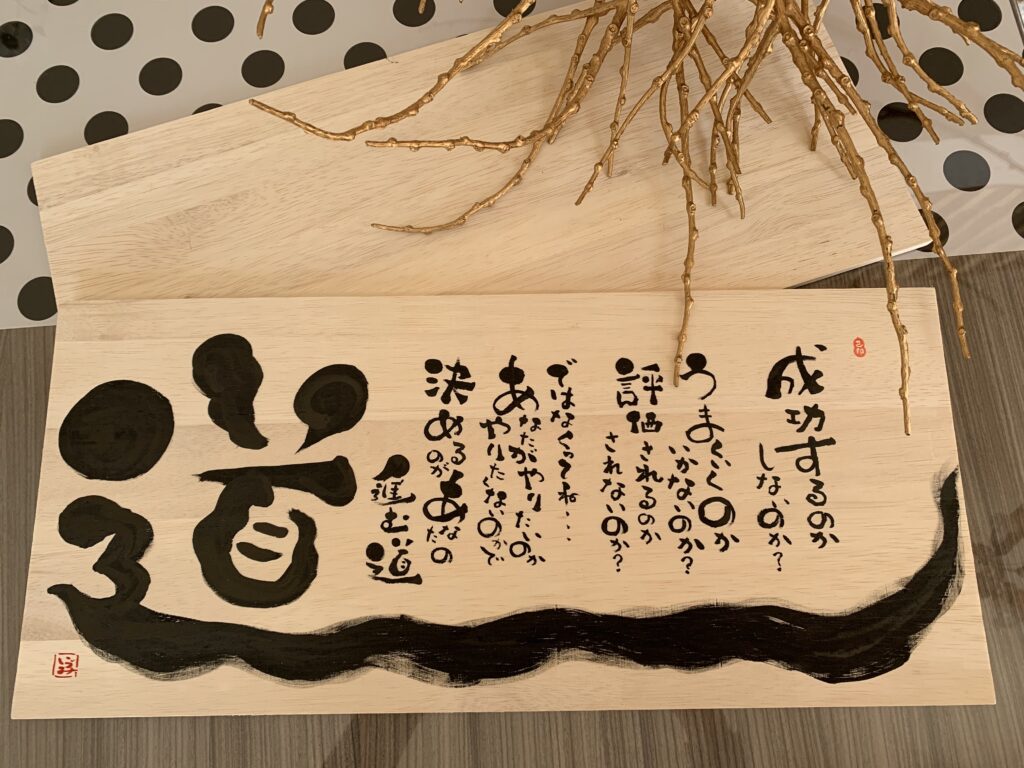 成功するのか
しないのか?
うまくいくのか
いかないのか?
評価されるのか
されないのか?
ではなくってね・・・
あなたがやりたいのか
やりたくないのかで
決めるのがあなたの
進む道
道